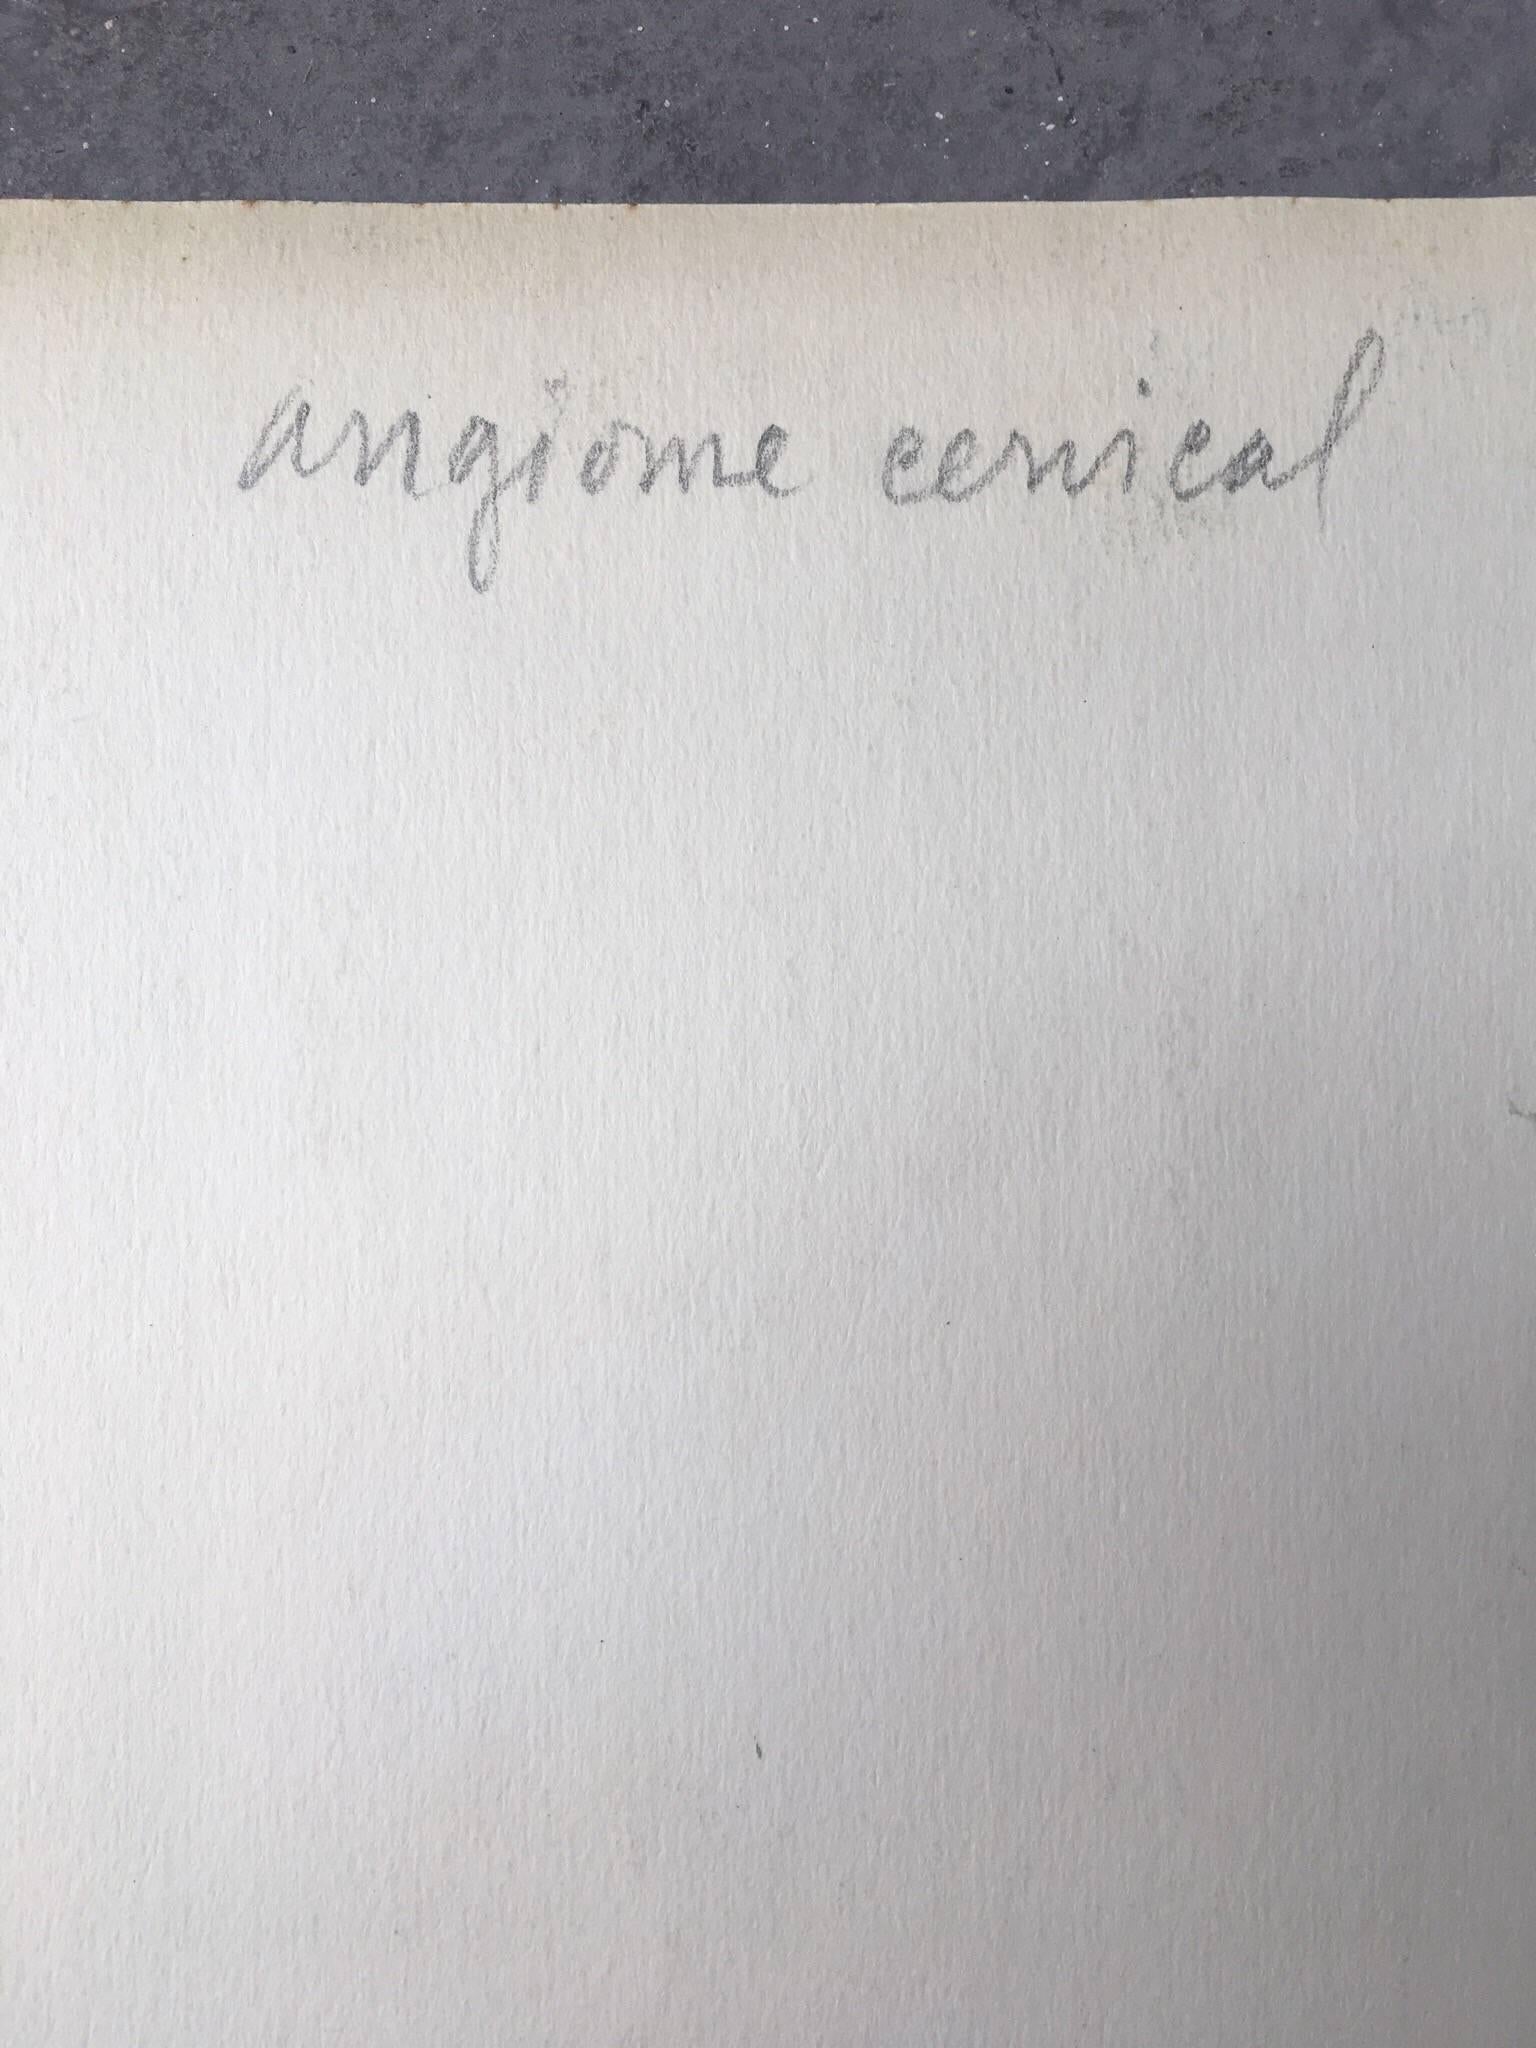 angiome cervical